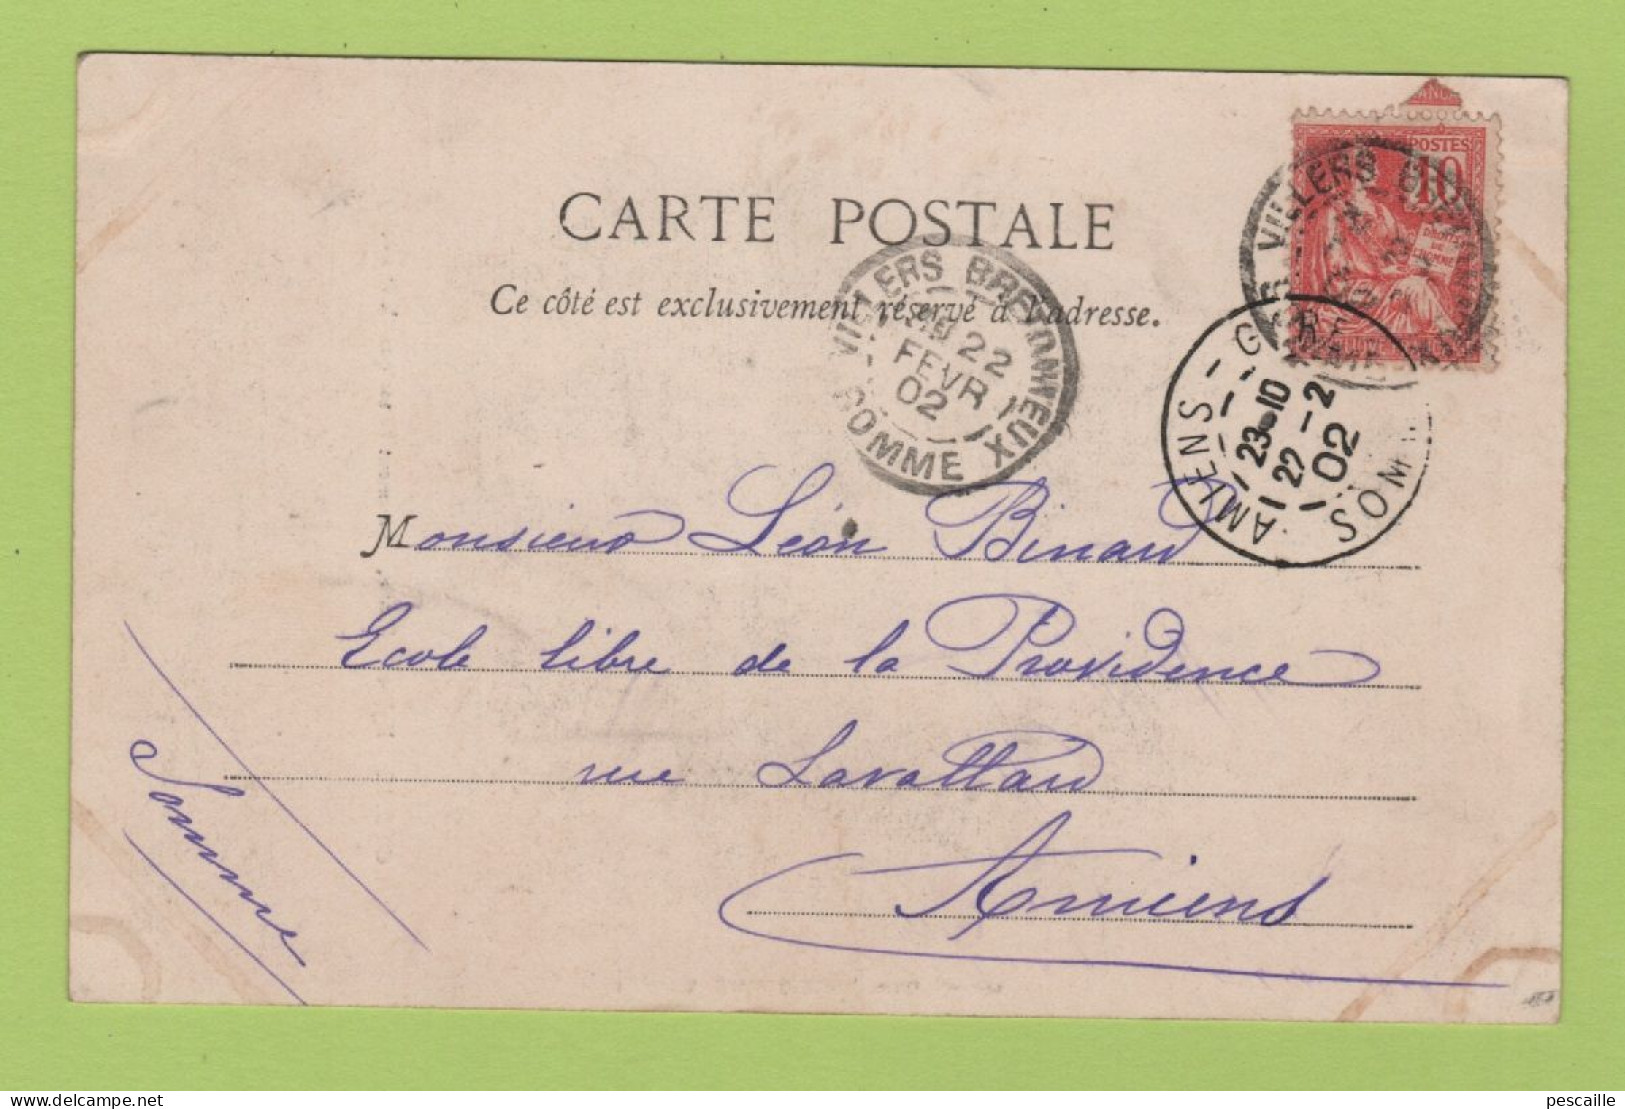 CARTE POSTALE
Ce côté est exclusivement réservé à l'adresse.
POSTES
10
VILLERS BRETONNEUX
22
FEVR
02
SOMME
VILLERS
AMIENS - GARE
23-10
22-2
02
SOM
Monsieur Léon Binard
Ecole libre de la Providence
rue Lavallard
Amiens
Somme
pescaille